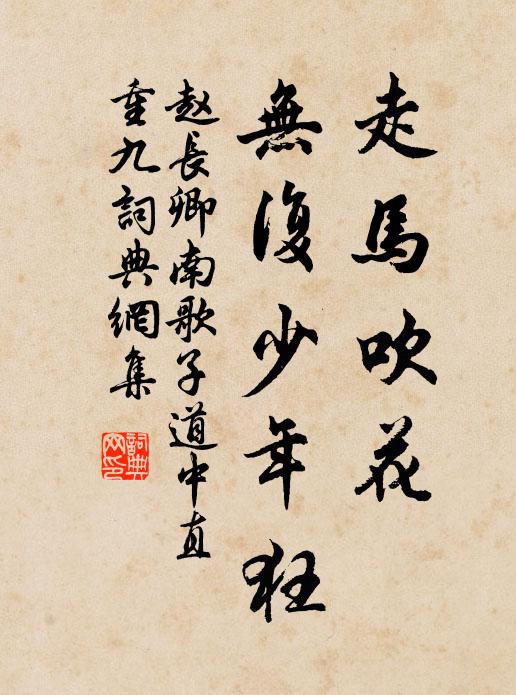 走馬吹花
無復少年狂
趙長卿南歌子道中直
重九詞典網集
詞典网印